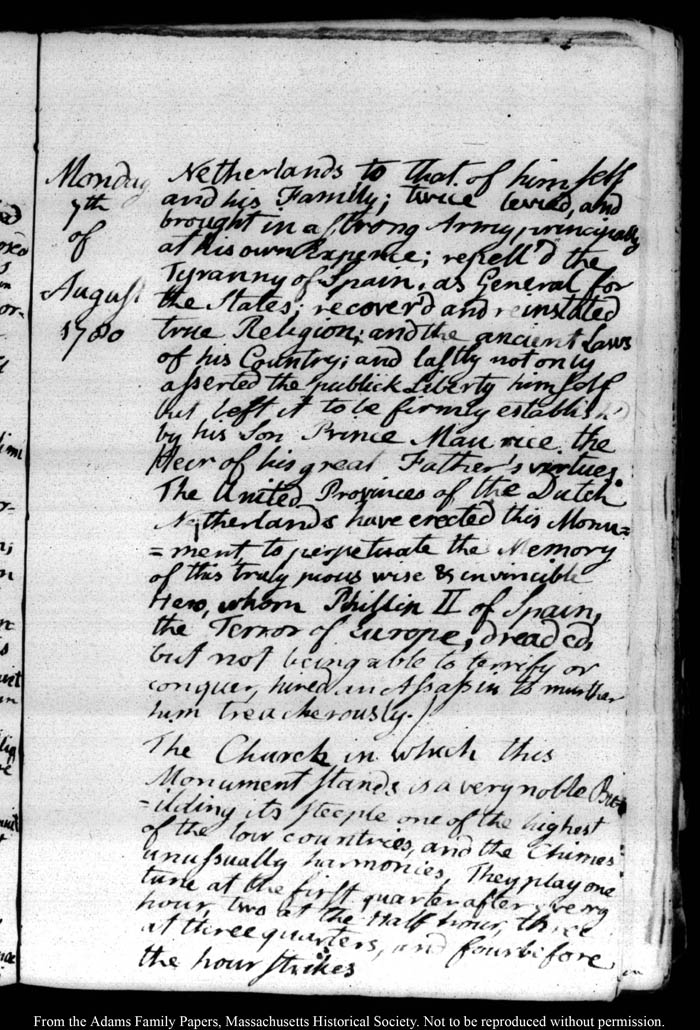 Monday
7th
of
August
1780
Netherlands to that of himself
and his Family; twice levied, and
brought in a strong Army, principally
at his own Expence; repell'd the
Tyranny of Spain, as General for
the States; recover'd and reinstated
true Religion; and the ancient Laws
of his Country; and lastly not only
asserted the publick Liberty himself
but left it to be firmly establish
by his Son Prince Maurice the
Heir of his great Father's virtues.
The United Provinces of the Dutch
Netherlands have erected this Monu=
=ment, to perpetuate the Memory
of this truly pious wise & invincible
Hero, whom Phillip II of Spain,
the Terror of Europe, dreaded,
but not being able to terrify or
conquer, hired an Assassin to murther
him treacherously.
The Church in which this
Monument stands is a very noble Bu-
=ilding its steeple one of the highest
of the low countries, and the Chimes
unussually harmonies, They play one
tune at the first quarter after every
hour, two at the Half hour, three
at three quarters, and four before
the hour strikes
From the Adams Family Papers, Massachusetts Historical Society. Not to be reproduced without permission.